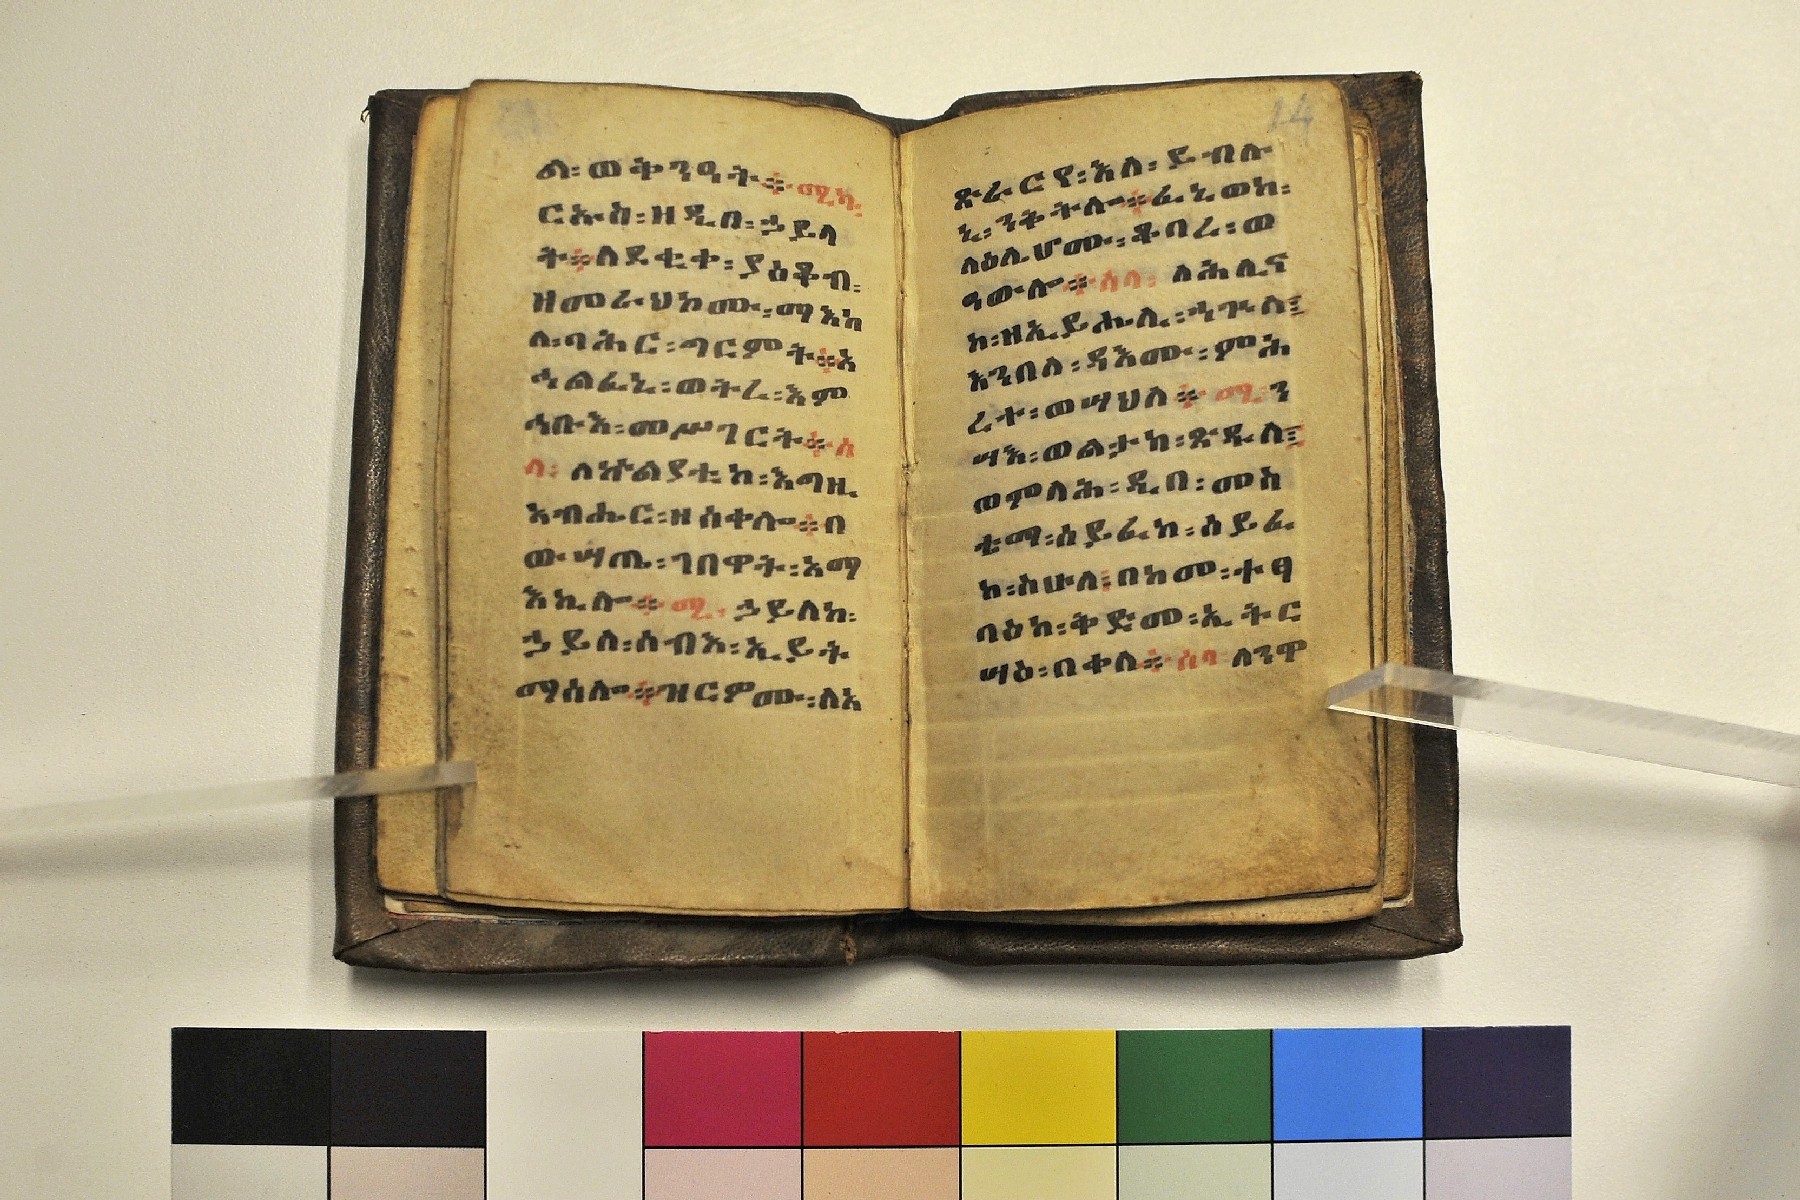 ል፡ወቅንዓት፨ሚካ
ርኤስ፡ዘዲበ፡ኃይላ
ት፨ለደቂቀ፡ያዕቆብ፡
ዘመራህኮሙ፡ማእከ
ለ፡ባሕር፡ግርምት፨አ
ኅልፈኒ፡ወትረ፡እም
ኅቡእ፡መሥገርት፨ሰ
ላ፡ ለኵልያቲከ፡እግዚ
አብሔር፡ዘሰቀሎ፨በ
ውሣጤ፡ገበዋት፡አማ
እኪሎ፨ሚ፡ኃይለከ፡
ኃይለ፡ሰብእ፡ኢይት
ማሰሎ፨ዝርዎሙ፡ለአ
ጽራርየ፡እለ፡ይብሉ
ኒ፡ንቅትሎ፨ፈኒወከ፡
ላዕሌሆሙ፡ቆባረ፡ወ
ዓውሎ፨ሰላ፡ ለሕሊና
ከ፡ዘኢይሔሊ፡ኂጉለ፡
እንበለ፡ዳእሙ፡ምሕ
ረተ፡ወሣህለ፨ሚ፡ን
ሣእ፡ወልታከ፡ጽዱለ፡
ወምላሕ፡ዲበ፡መስ
ቴማ፡ሰይፈከ፡ሰይፈ
ከ፡ስሁለ፡በከመ፡ተፃ
ባዕከ፡ቅድመ፡ኢትር
ሣዕ፡በቀለ፨ሰላ ለንዋ
14